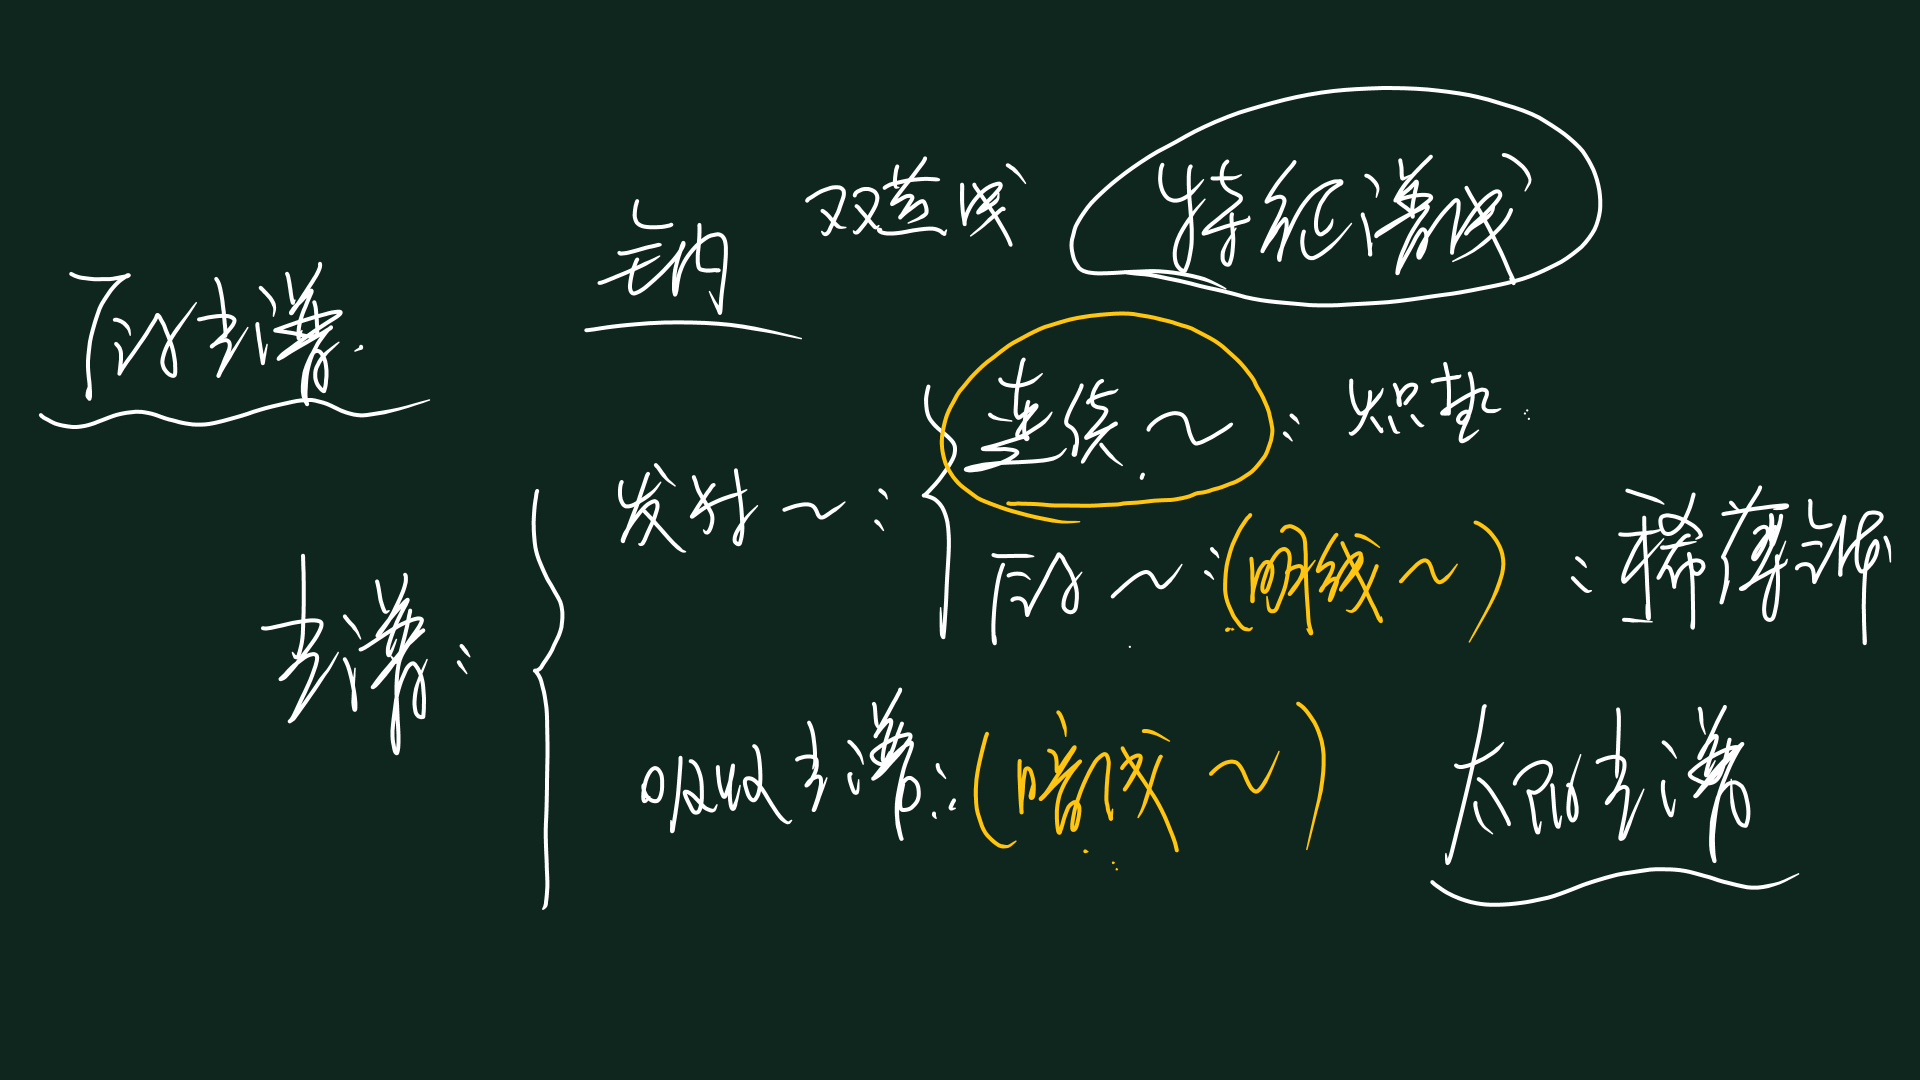 原子光谱
钠 双黄线 特征谱线
光谱:
发射~:
连续~: 炽热
原子~:(明线~):稀薄
吸收光谱:(暗线~) 太阳光谱